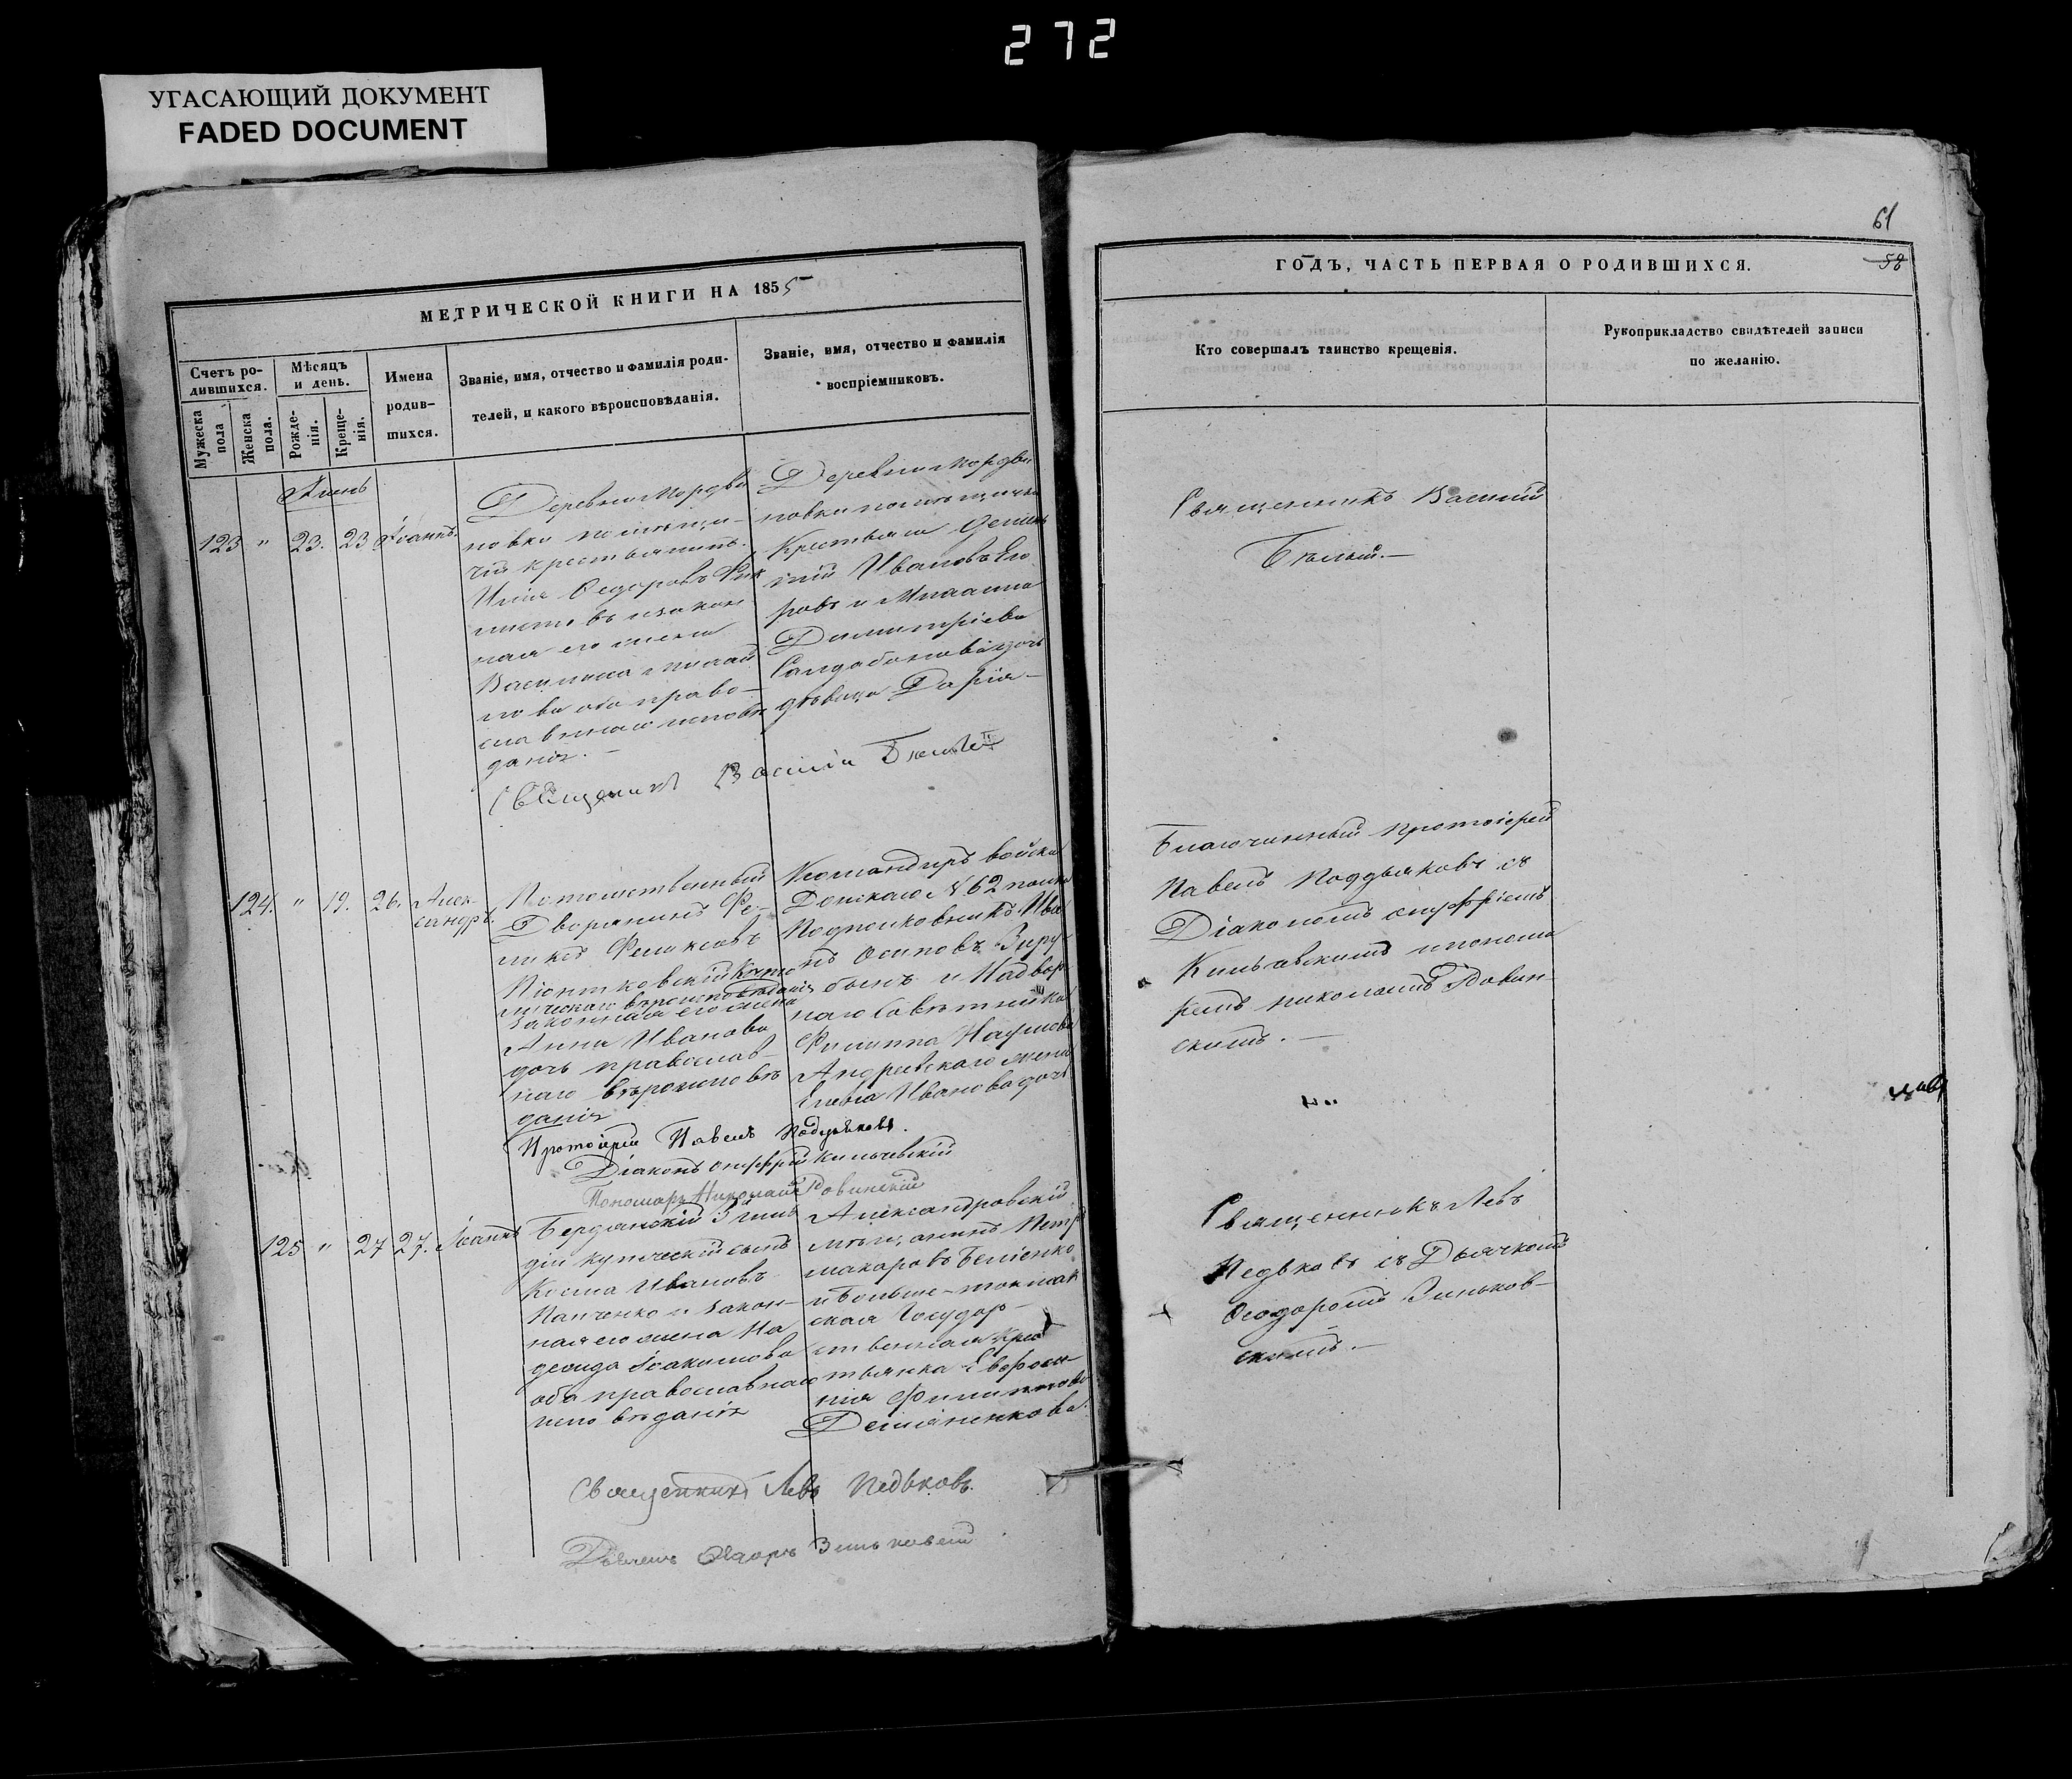 272
УГАСАЮЩИЙ ДОКУМЕНТ
FADED DOCUMENT
МЕТРИЧЕСКОЙ КНИГИ НА 1855
Счетъ ро-
дившихся.
Мужеска
пола
Женска
пола.
Мѣсяцъ
и день.
Рожде-
нія.
Креще-
нія.
Имена
родив-
шихся.
Званіе, имя, отчество и фамилія роди-
телей, и какого вѣроисповѣданія.
Званіе, имя, отчество и фамилія
воспріемниковъ.
123 " 23. 23 Іоаннъ.
Деревни Мордви
новки помѣщи-
чій крестьянинъ
Илія Ѳедоровъ
и закон
ная его жена
Василиса
ва оба право-
славнаго исповѣ
данія. —
Деревни Мордви
новки помѣщичьи
Крестьяне
Ивановъ Его
ровъ и
Димитріева
дочь
дѣвица Дарія —
Священникъ Василій Бѣлый
124. " 19. 26. Алек-
сандръ.
Потомственный
Дворянинъ Фе-
ликсъ Феликсовъ
Піонтковскій Като
лическаго вѣроисповѣданія
Законная его жена
Анна Иванова
дочь православ-
наго вѣроисповѣ
данія
Командиръ войска
Донскаго №62 полка
Подполковникъ Ива
нъ Осиповъ Зиру-
бынъ и Надвор
наго Совѣтника
Филиппа Наумова
Андреевскаго жена
Елена Иванова дочь
Протоіерей Павелъ Поддьяковъ.
Діаконъ Онуфрій Кильчевскій
Пономарь Николай Ровинскій
125 " 27 27. Іоаннъ
Бердянскій 3 гиль
діи купеческій сынъ
Косма Ивановъ
Панченко и закон-
ная его жена На
дежда Іоакимова
оба православнаго
исповѣданія
Александровскій
мѣщанинъ Петръ
Макаровъ Беліенко
и Больше-токмак
ская Государ-
ственная Крес
тьянка Евфроси-
нія Филиппова
Деміяненкова.
Священникъ Левъ Педьковъ.
Дьячекъ Ѳеодоръ Зиньковскій
61
58
ГОДЪ, ЧАСТЬ ПЕРВАЯ О РОДИВШИХСЯ.
Кто совершалъ таинство крещенія.
Рукоприкладство свидѣтелей записи
по желанію.
Священникъ Василій
Бѣлый. —
Благочинный Протоіерей
Павелъ Поддьяковъ съ
Діакономъ Онуфріемъ
Кильчевскимъ и понома
ремъ Николаемъ Ровин-
скимъ. —
Священникъ Левъ
Педьковъ съ Дьячкомъ
Ѳеодоромъ Зиньков-
скимъ. —